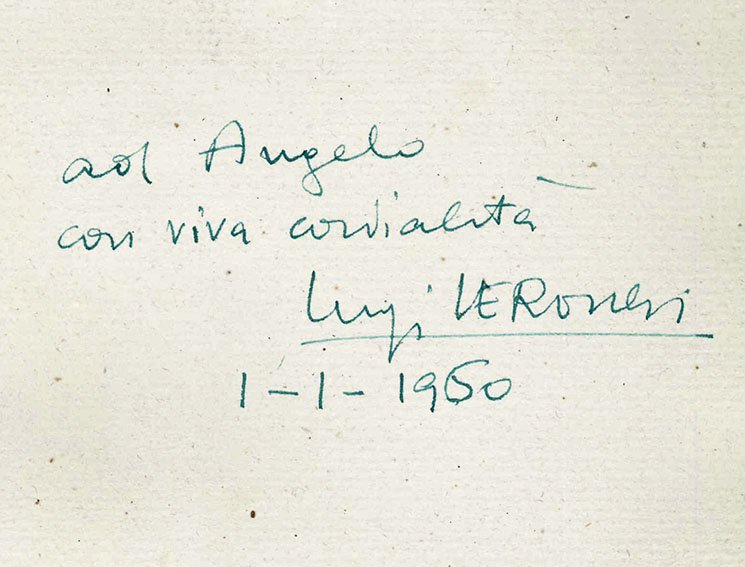 ad Angelo
con viva cordialità
Luigi VERONESI
1-1-1950